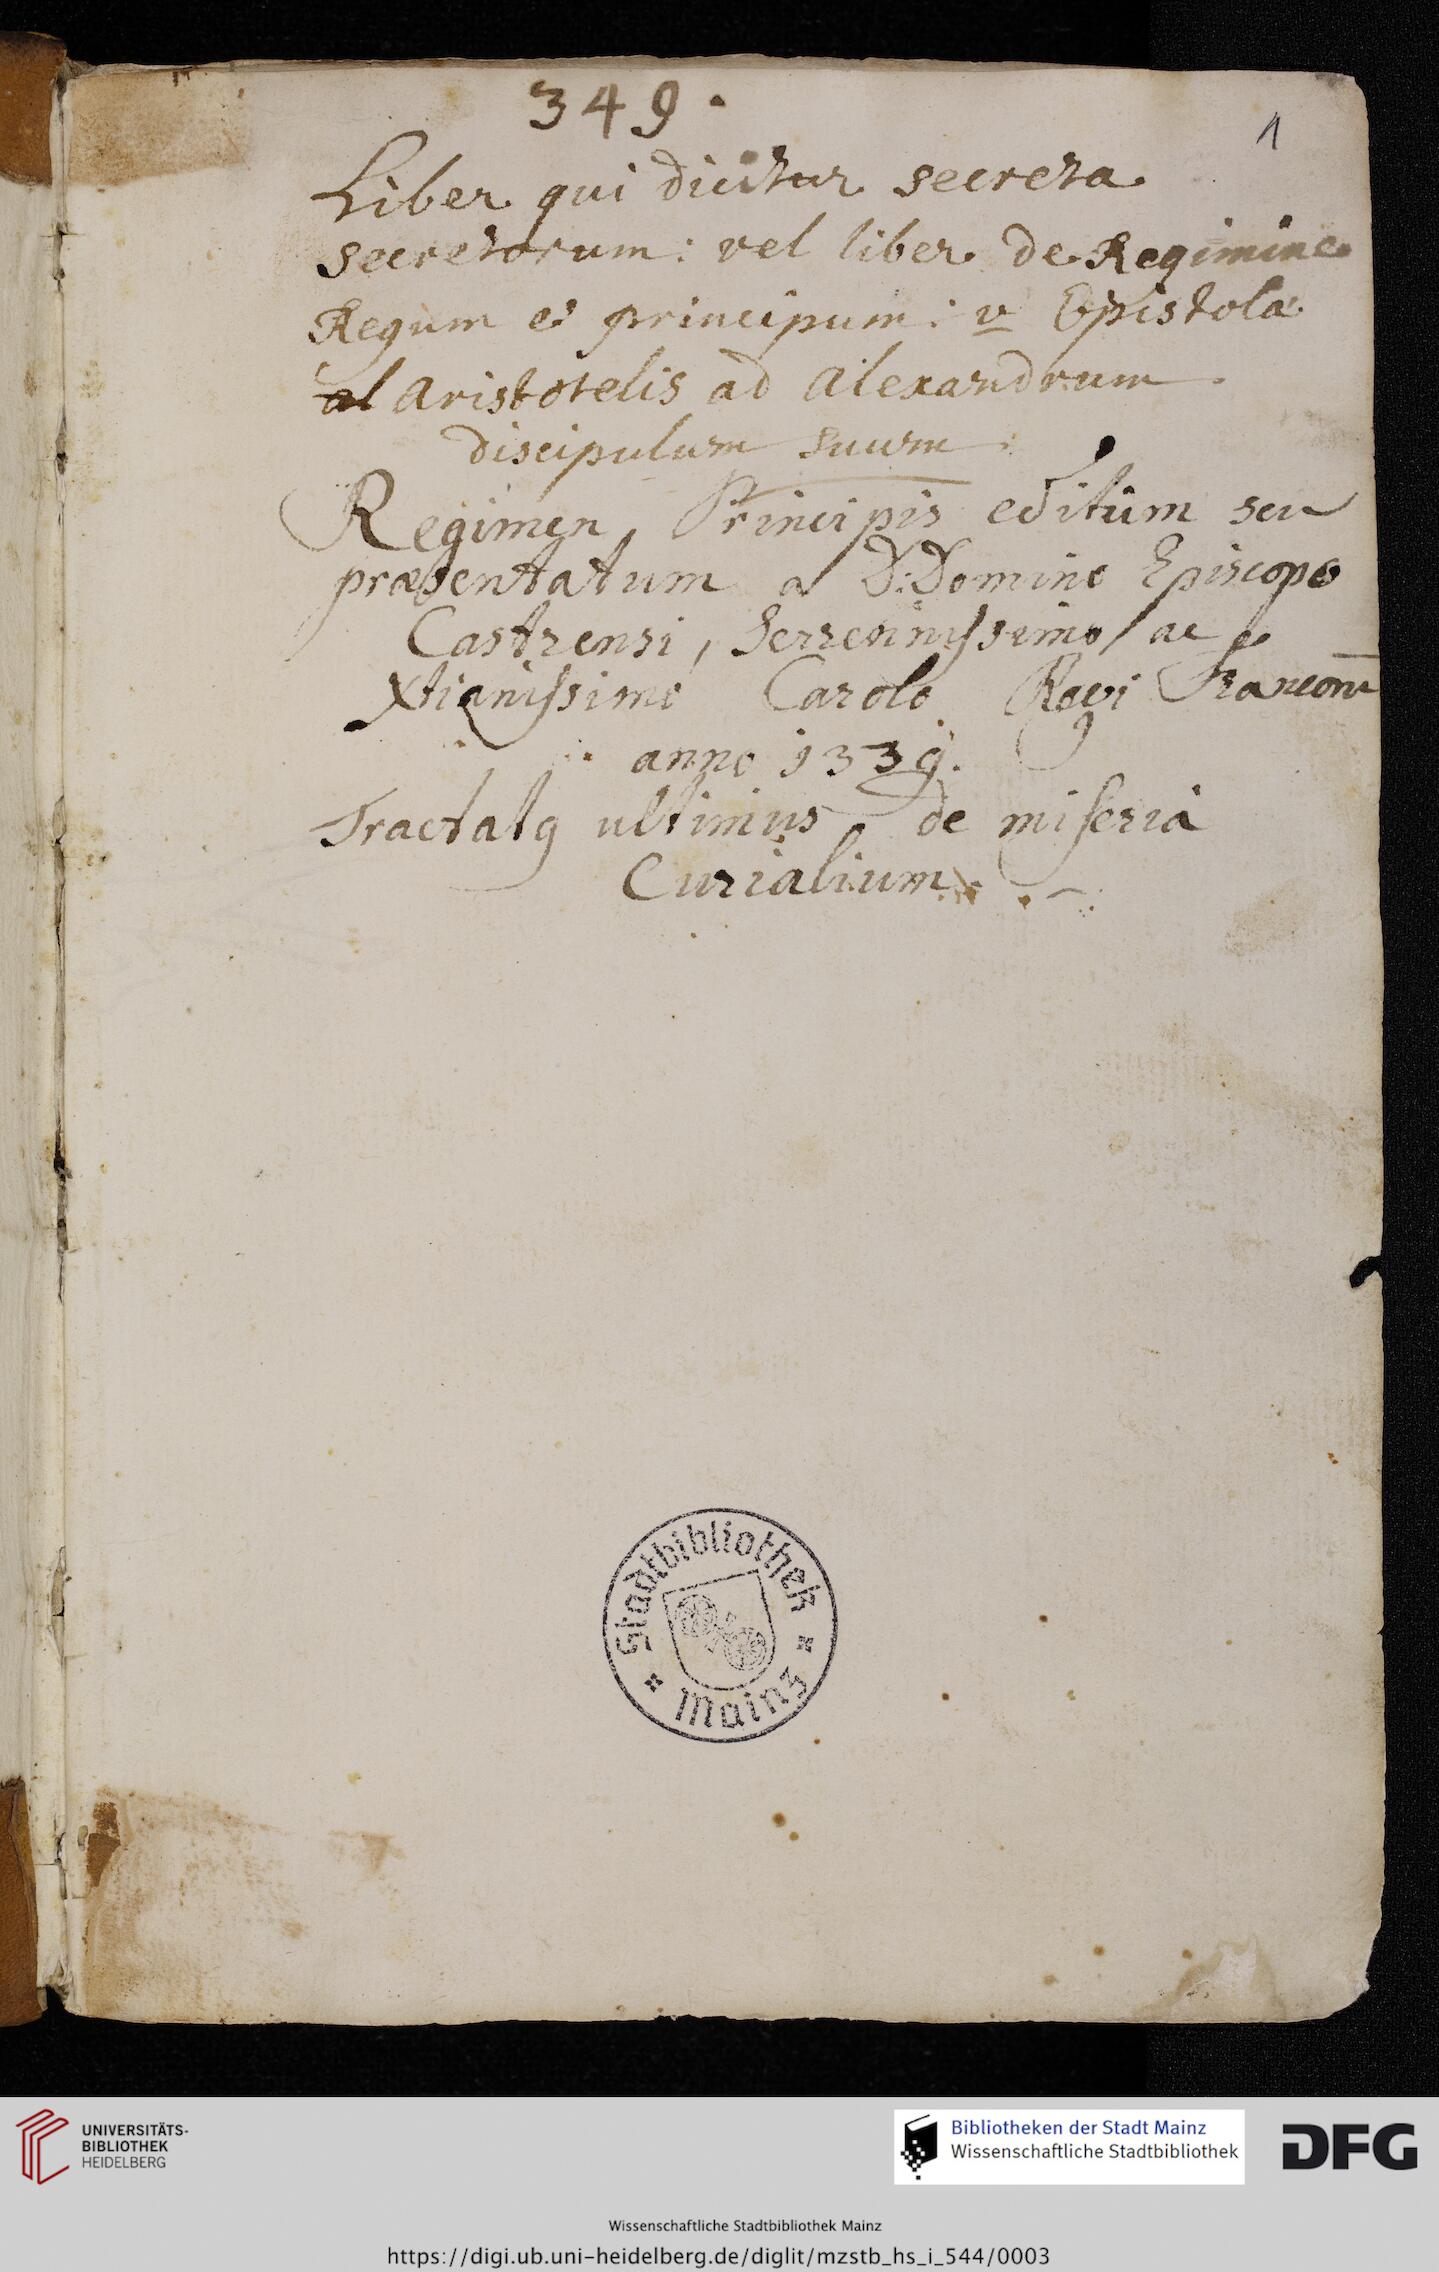 349.
1
Liber qui dicitur secreta
secretorum: vel liber de Regimine
Regum et principum: v Epistola
al Aristotelis ad Alexandrum
discipulum suum:
Regimen, Principis editum seu
præsentatum a D: Domino Episcopo
Castrensi, Serrenissimo, ac
Xtianissimo Carolo Regi Francorū
anno 1339.
Tractatq ultimus, de miseria
Curialium.
Stadtbibliothek
Mainz
UNIVERSITÄTS-
BIBLIOTHEK
HEIDELBERG
Bibliotheken der Stadt Mainz
Wissenschaftliche Stadtbibliothek
DFG
Wissenschaftliche Stadtbibliothek Mainz
https://digi.ub.uni-heidelberg.de/diglit/mzstb_hs_i_544/0003